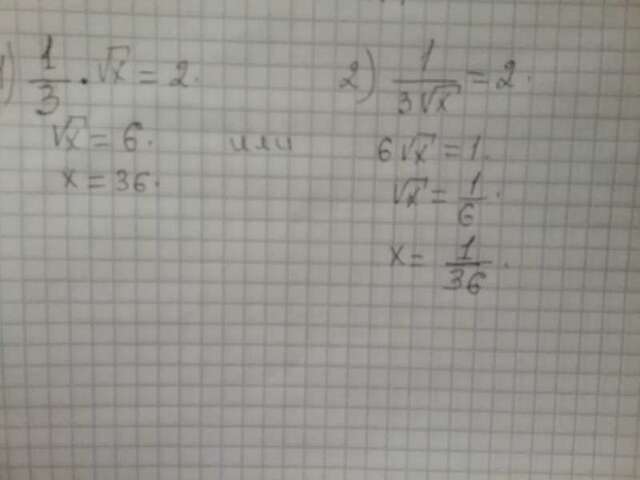 1) 1/3 · √x = 2.
√x = 6.
x = 36.
или
2) 1/(3√x) = 2.
6√x = 1.
√x = 1/6.
x = 1/36.